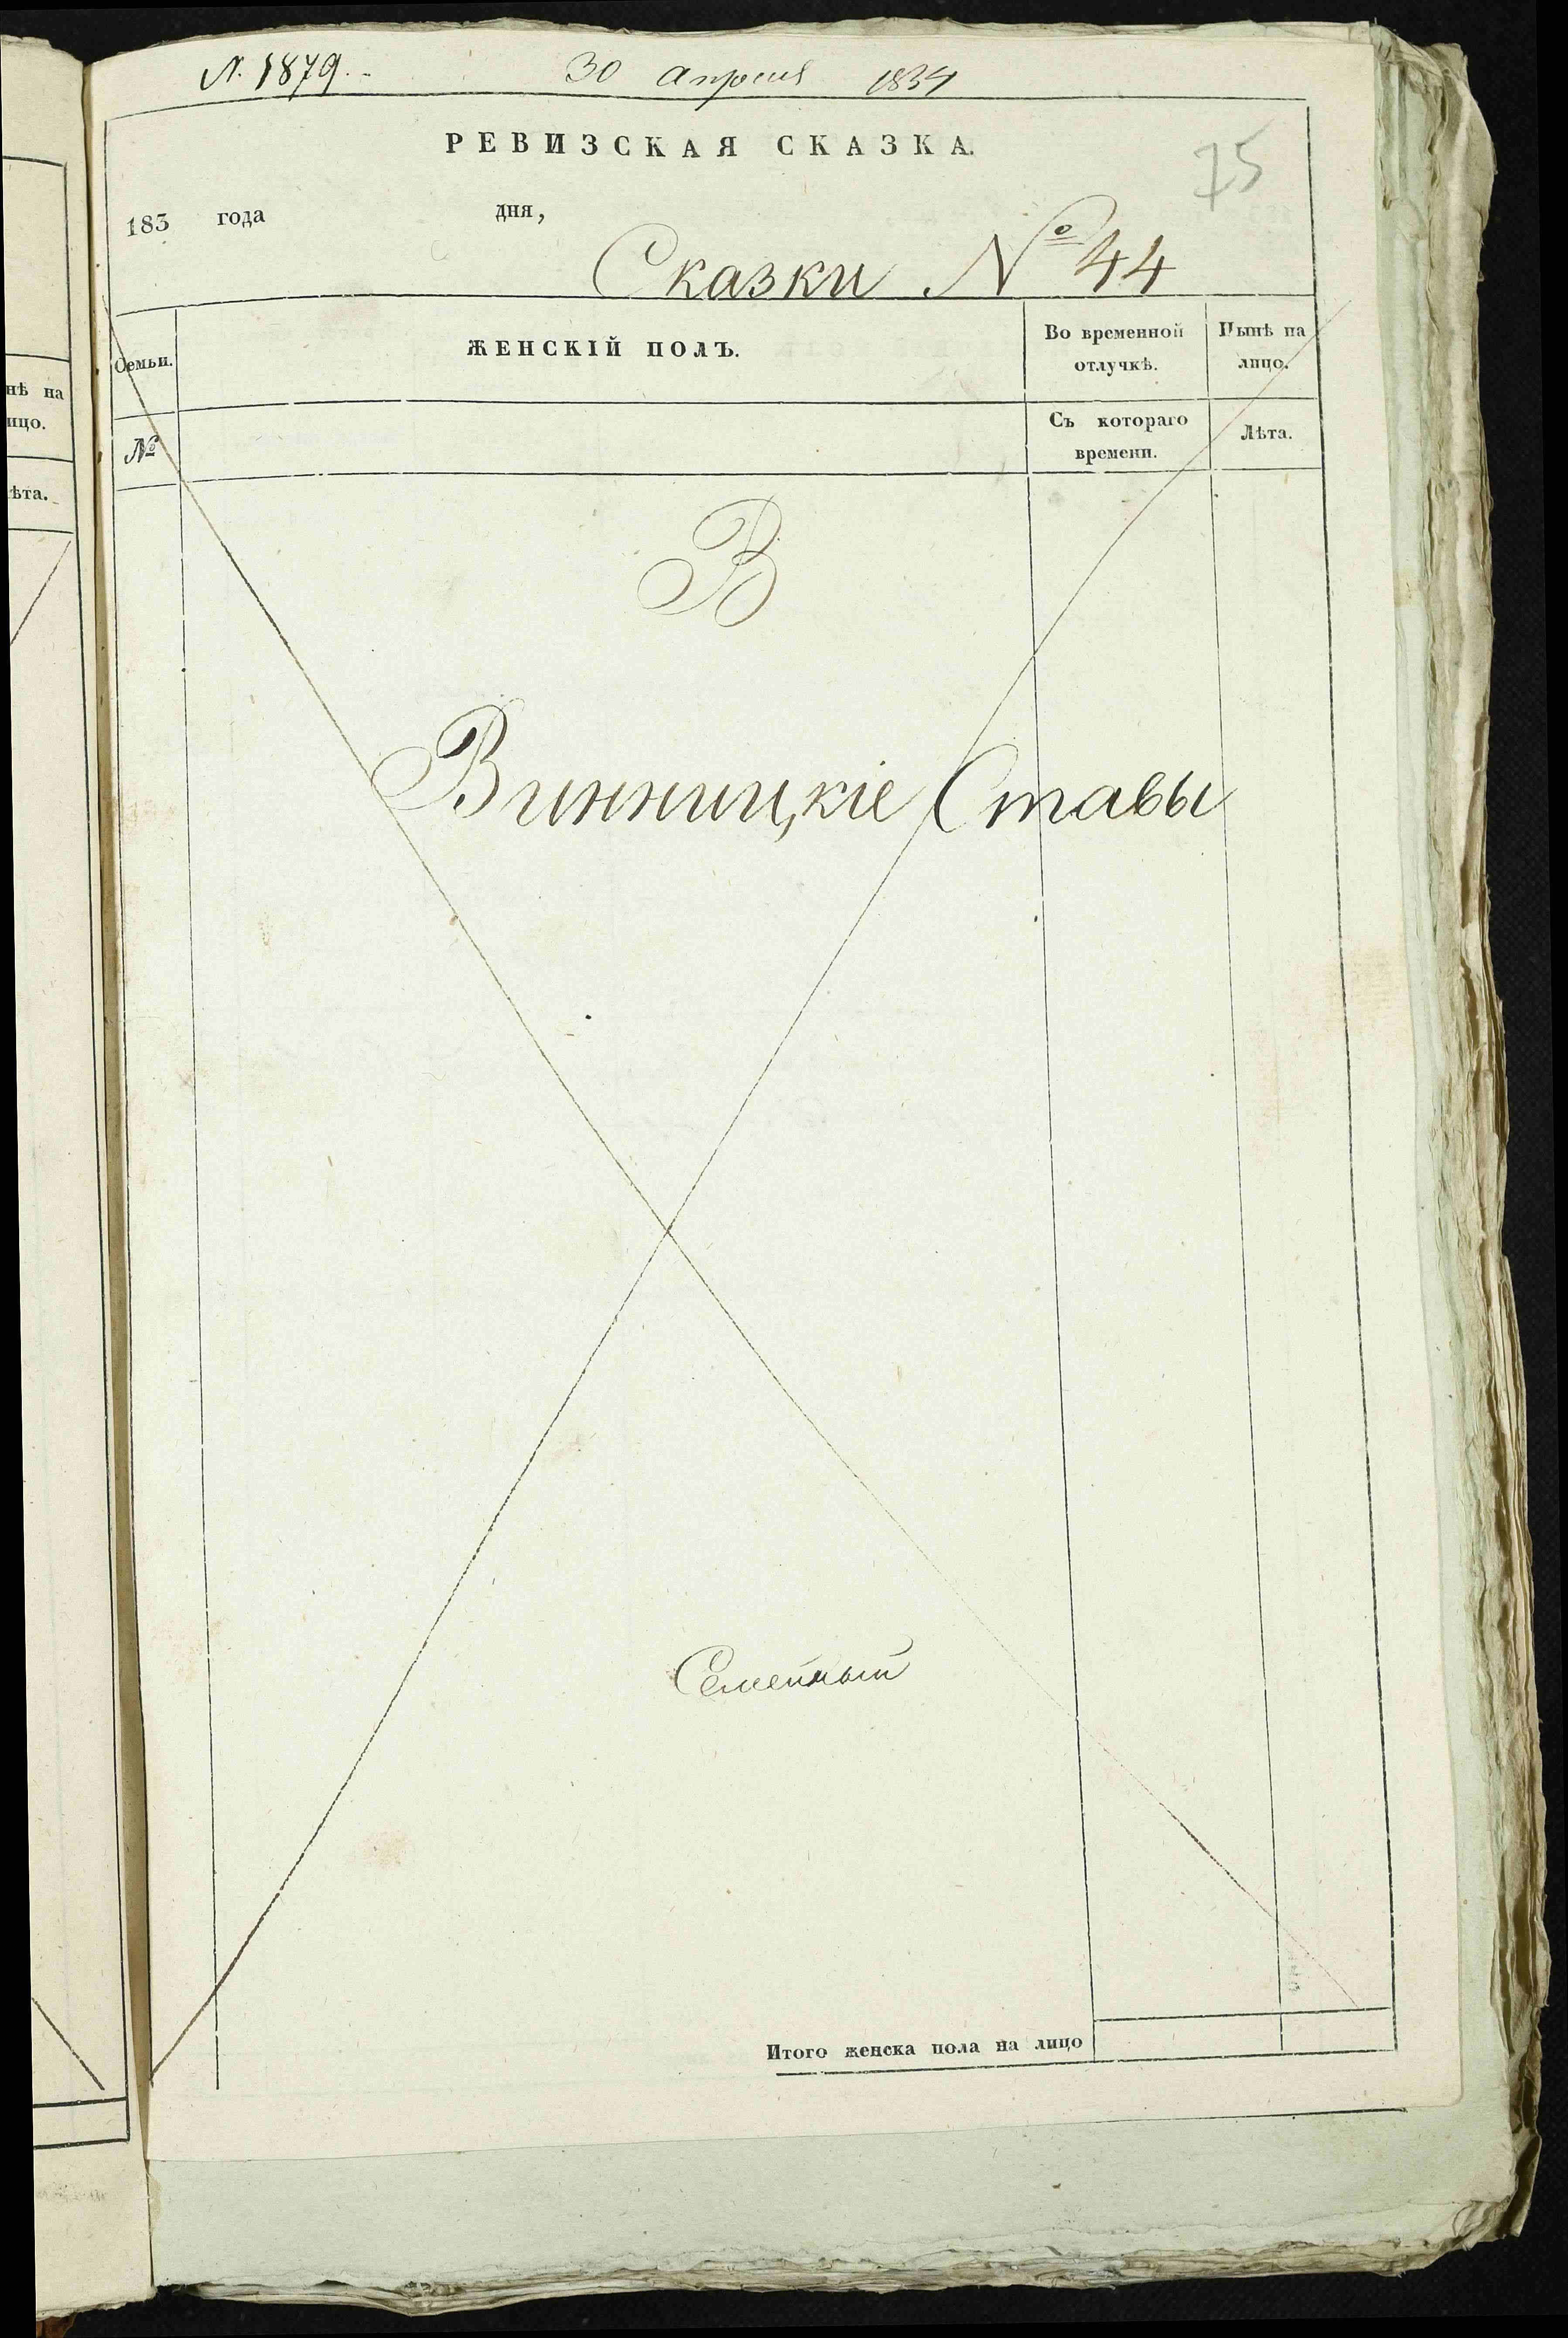 N. 1879.
30 апреля 1834
РЕВИЗСКАЯ СКАЗКА.
75
183 года дня,
Сказки № 44
Семьи.
ЖЕНСКІЙ ПОЛЪ.
Во временной
отлучкѣ.
Нынѣ на
лицо.
№
Съ котораго
времени.
Лѣта.
нѣ на
ицо.
ѣта.
В
Винницкіе Ставы
Семейный
Итого женска пола на лицо